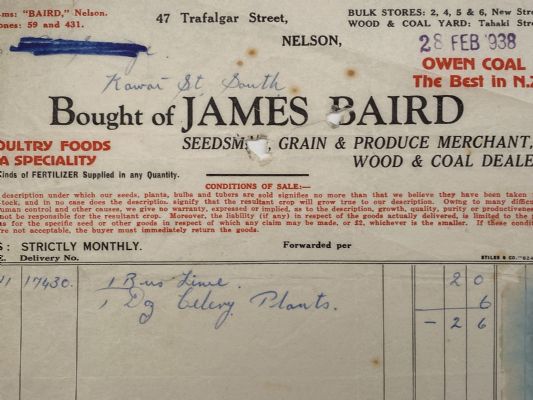 ms: "BAIRD," Nelson.
ones: 59 and 431.
47 Trafalgar Street,
NELSON,
BULK STORES: 2, 4, 5 & 6, New Stre
WOOD & COAL YARD: Tahaki Str
28 FEB 1938
OWEN COAL
The Best in N.Z
Kawai St. South
Bought of JAMES BAIRD
OULTRY FOODS
A SPECIALITY
SEEDSM , GRAIN & PRODUCE MERCHANT,
WOOD & COAL DEALE
Kinds of FERTILIZER Supplied in any Quantity.
CONDITIONS OF SALE:—
description under which our seeds, plants, bulbs and tubers are sold signifies no more than that we believe they have been taken
stock, and in no case does the description signify that the resultant crop will grow true to our description. Owing to many difficu
human control and other causes, we give no warranty, expressed or implied, as to the description, growth, quality, purity or productiveness
not be responsible for the resultant crop. Moreover, the liability (if any) in respect of the goods actually delivered, is limited to the
as for the specific seed or other goods in respect of which any claim may be made, or £2, whichever is the smaller. If these condition
re not acceptable, the buyer must immediately return the goods.
S: STRICTLY MONTHLY.
Forwarded per
E. Delivery No.
STILES & CO.
17430. 1 Bus Lime. 2 0
1 Dg Celery Plants. 6
- 2 6